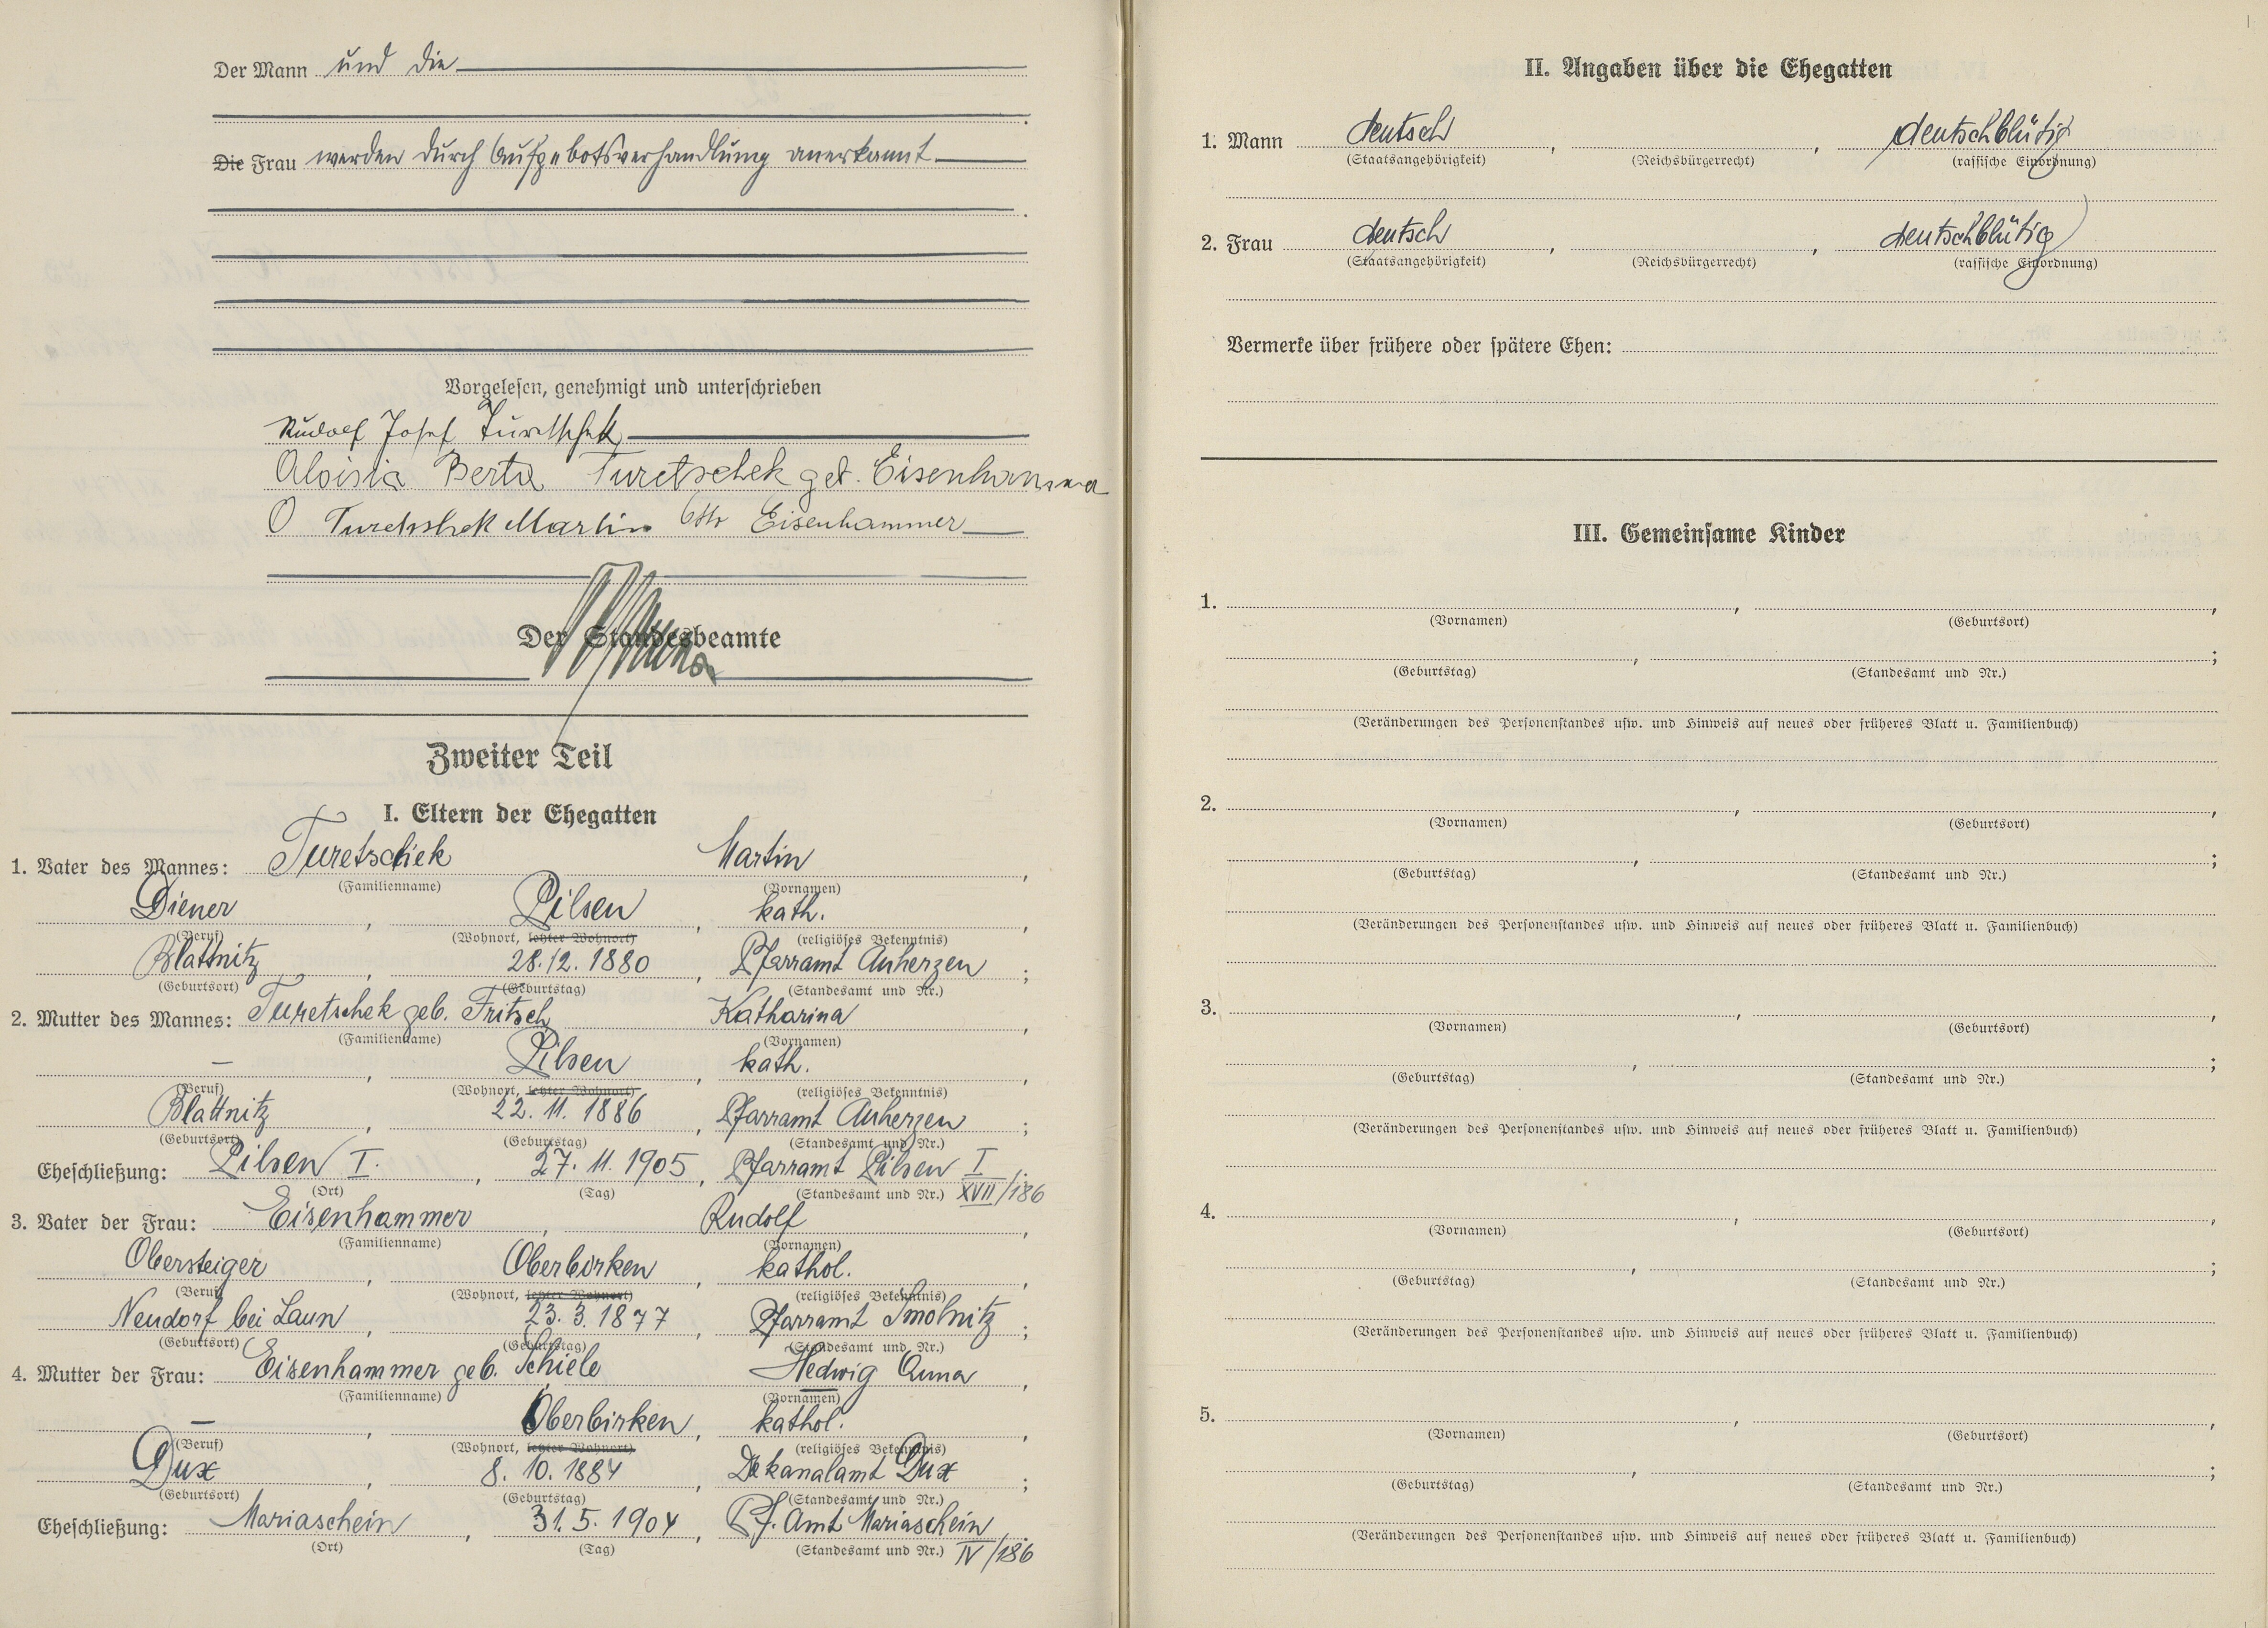 Der Mann und die
Die Frau werden durch Aufgebotsverhandlung anerkannt.
Vorgelesen, genehmigt und unterschrieben
Rudolf Josef Turetschek
Aloisia Berta Turetschek geb. Eisenhammer
Turetschek Martin Otto Eisenhammer
Der Standesbeamte
Zweiter Teil
I. Eltern der Ehegatten
1. Vater des Mannes: Turetschek Martin,
(Familienname) (Vornamen)
Diener, Pilsen, kath.,
(Beruf) (Wohnort, letzter Wohnort) (religiöses Bekenntnis)
Blattnitz, 28.12.1880, Pfarramt Auherzen;
(Geburtsort) (Geburtstag) (Standesamt und Nr.)
2. Mutter des Mannes: Turetschek geb. Fritsch Katharina,
(Familienname) (Vornamen)
—, Pilsen, kath.,
(Beruf) (Wohnort, letzter Wohnort) (religiöses Bekenntnis)
Blattnitz, 22.11.1886, Pfarramt Auherzen;
(Geburtsort) (Geburtstag) (Standesamt und Nr.)
Eheschließung: Pilsen I., 27.11.1905, Pfarramt Pilsen I.
(Ort) (Tag) (Standesamt und Nr.) XVII/186
3. Vater der Frau: Eisenhammer, Rudolf,
(Familienname) (Vornamen)
Obersteiger, Oberbirken, kathol.,
(Beruf) (Wohnort, letzter Wohnort) (religiöses Bekenntnis)
Neudorf bei Laun, 23.3.1877, Pfarramt Smolnitz;
(Geburtsort) (Geburtstag) (Standesamt und Nr.)
4. Mutter der Frau: Eisenhammer geb. Schiele Hedwig Anna,
(Familienname) (Vornamen)
—, Oberbirken, kathol.,
(Beruf) (Wohnort, letzter Wohnort) (religiöses Bekenntnis)
Dux, 8.10.1884, Dekanalamt Dux;
(Geburtsort) (Geburtstag) (Standesamt und Nr.)
Eheschließung: Mariaschein, 31.5.1904, Pf. Amt Mariaschein.
(Ort) (Tag) (Standesamt und Nr.) IV/186
II. Angaben über die Ehegatten
1. Mann deutsch, , deutschblütig
(Staatsangehörigkeit) (Reichsbürgerrecht) (rassische Einordnung)
2. Frau deutsch, , deutschblütig
(Staatsangehörigkeit) (Reichsbürgerrecht) (rassische Einordnung)
Vermerke über frühere oder spätere Ehen:
III. Gemeinsame Kinder
1. , ,
(Vornamen) (Geburtsort)
, ;
(Geburtstag) (Standesamt und Nr.)
(Veränderungen des Personenstandes usw. und Hinweis auf neues oder früheres Blatt u. Familienbuch)
2. , ,
(Vornamen) (Geburtsort)
, ;
(Geburtstag) (Standesamt und Nr.)
(Veränderungen des Personenstandes usw. und Hinweis auf neues oder früheres Blatt u. Familienbuch)
3. , ,
(Vornamen) (Geburtsort)
, ;
(Geburtstag) (Standesamt und Nr.)
(Veränderungen des Personenstandes usw. und Hinweis auf neues oder früheres Blatt u. Familienbuch)
4. , ,
(Vornamen) (Geburtsort)
, ;
(Geburtstag) (Standesamt und Nr.)
(Veränderungen des Personenstandes usw. und Hinweis auf neues oder früheres Blatt u. Familienbuch)
5. , ,
(Vornamen) (Geburtsort)
, ;
(Geburtstag) (Standesamt und Nr.)
(Veränderungen des Personenstandes usw. und Hinweis auf neues oder früheres Blatt u. Familienbuch)